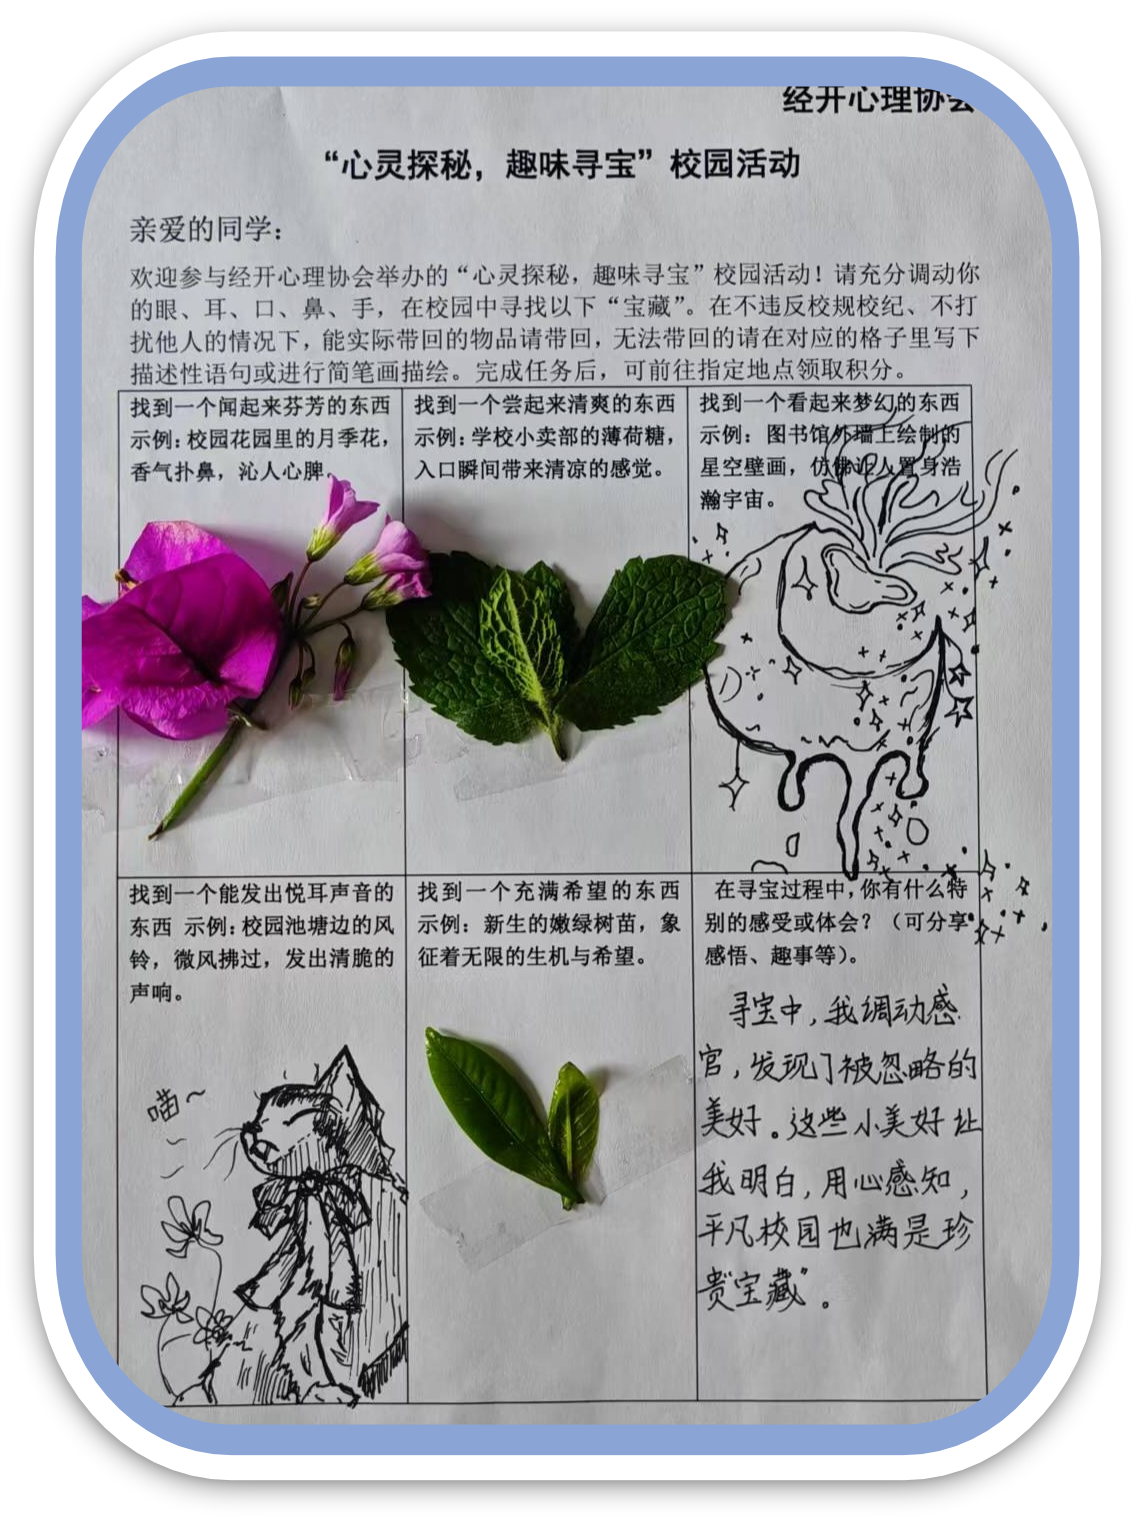 经开心理协会
“心灵探秘，趣味寻宝”校园活动
亲爱的同学：
欢迎参与经开心理协会举办的“心灵探秘，趣味寻宝”校园活动！请充分调动你
的眼、耳、口、鼻、手，在校园中寻找以下“宝藏”。在不违反校规校纪、不打
扰他人的情况下，能实际带回的物品请带回，无法带回的请在对应的格子里写下
描述性语句或进行简笔画描绘。完成任务后，可前往指定地点领取积分。
找到一个闻起来芬芳的东西
示例：校园花园里的月季花，
香气扑鼻，沁人心脾。
找到一个尝起来清爽的东西
示例：学校小卖部的薄荷糖，
入口瞬间带来清凉的感觉。
找到一个看起来梦幻的东西
示例：图书馆外墙上绘制的
星空壁画，仿佛让人置身浩
瀚宇宙。
找到一个能发出悦耳声音的
东西 示例：校园池塘边的风
铃，微风拂过，发出清脆的
声响。
喵~
找到一个充满希望的东西
示例：新生的嫩绿树苗，象
征着无限的生机与希望。
在寻宝过程中，你有什么特
别的感受或体会？（可分享
感悟、趣事等）。
寻宝中，我调动感
官，发现了被忽略的
美好。这些小美好让
我明白，用心感知，
平凡校园也满是珍
贵“宝藏”。